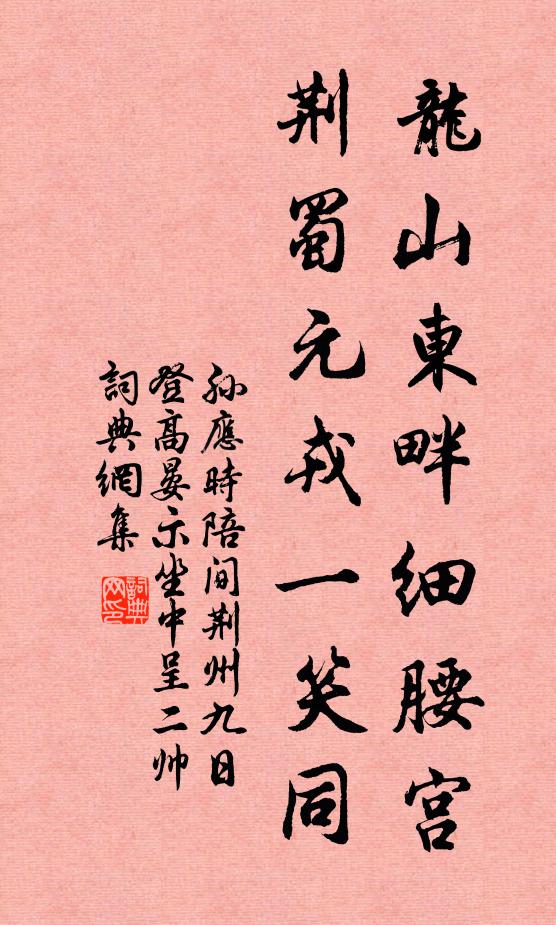 龍山東畔細腰宮
荆蜀元戎一笑同
孙應時陪间荆州九日
登高晏示坐中呈二帅
詞典網集
詞典
网印